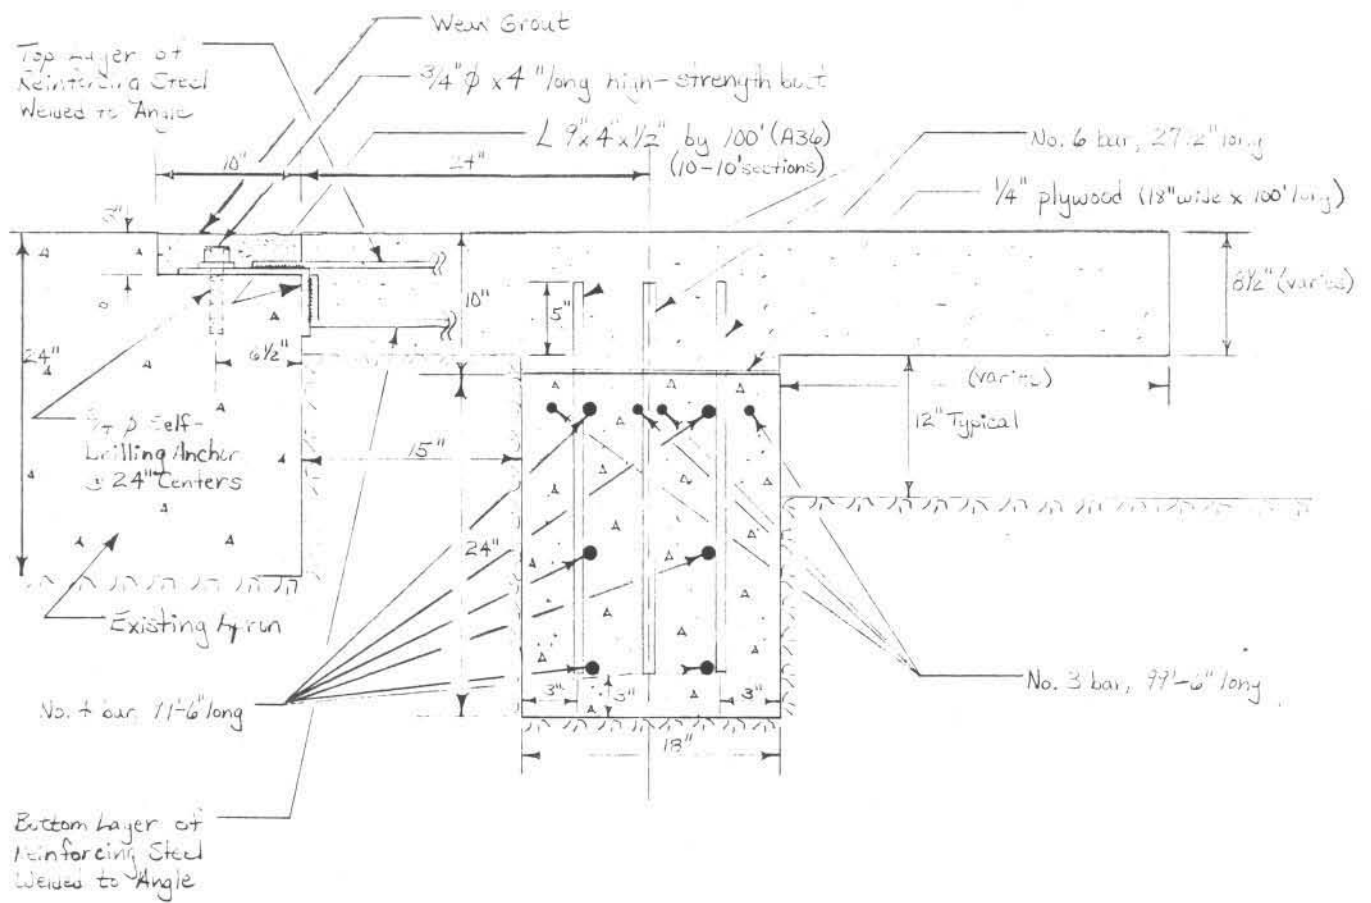 Weld Grout
Top Layer of
Reinforcing Steel
Welded to Angle
3/4" φ x 4" long high-strength bolt
L 9" x 4" x 1/2" by 100' (A36)
(10-10' sections)
No. 6 bar, 27 1/2" long
1/4" plywood (18" wide x 100' long)
10"
24"
3"
10"
8 1/2" (varies)
5"
24"
6 1/2"
(varies)
12" Typical
φ Self-
Drilling Anchor
@ 24" Centers
15"
24"
Existing Apron
3"
3"
3"
No. 4 bar, long
No. 3 bar, 99'-6" long
18"
Bottom Layer of
Reinforcing Steel
Welded to Angle